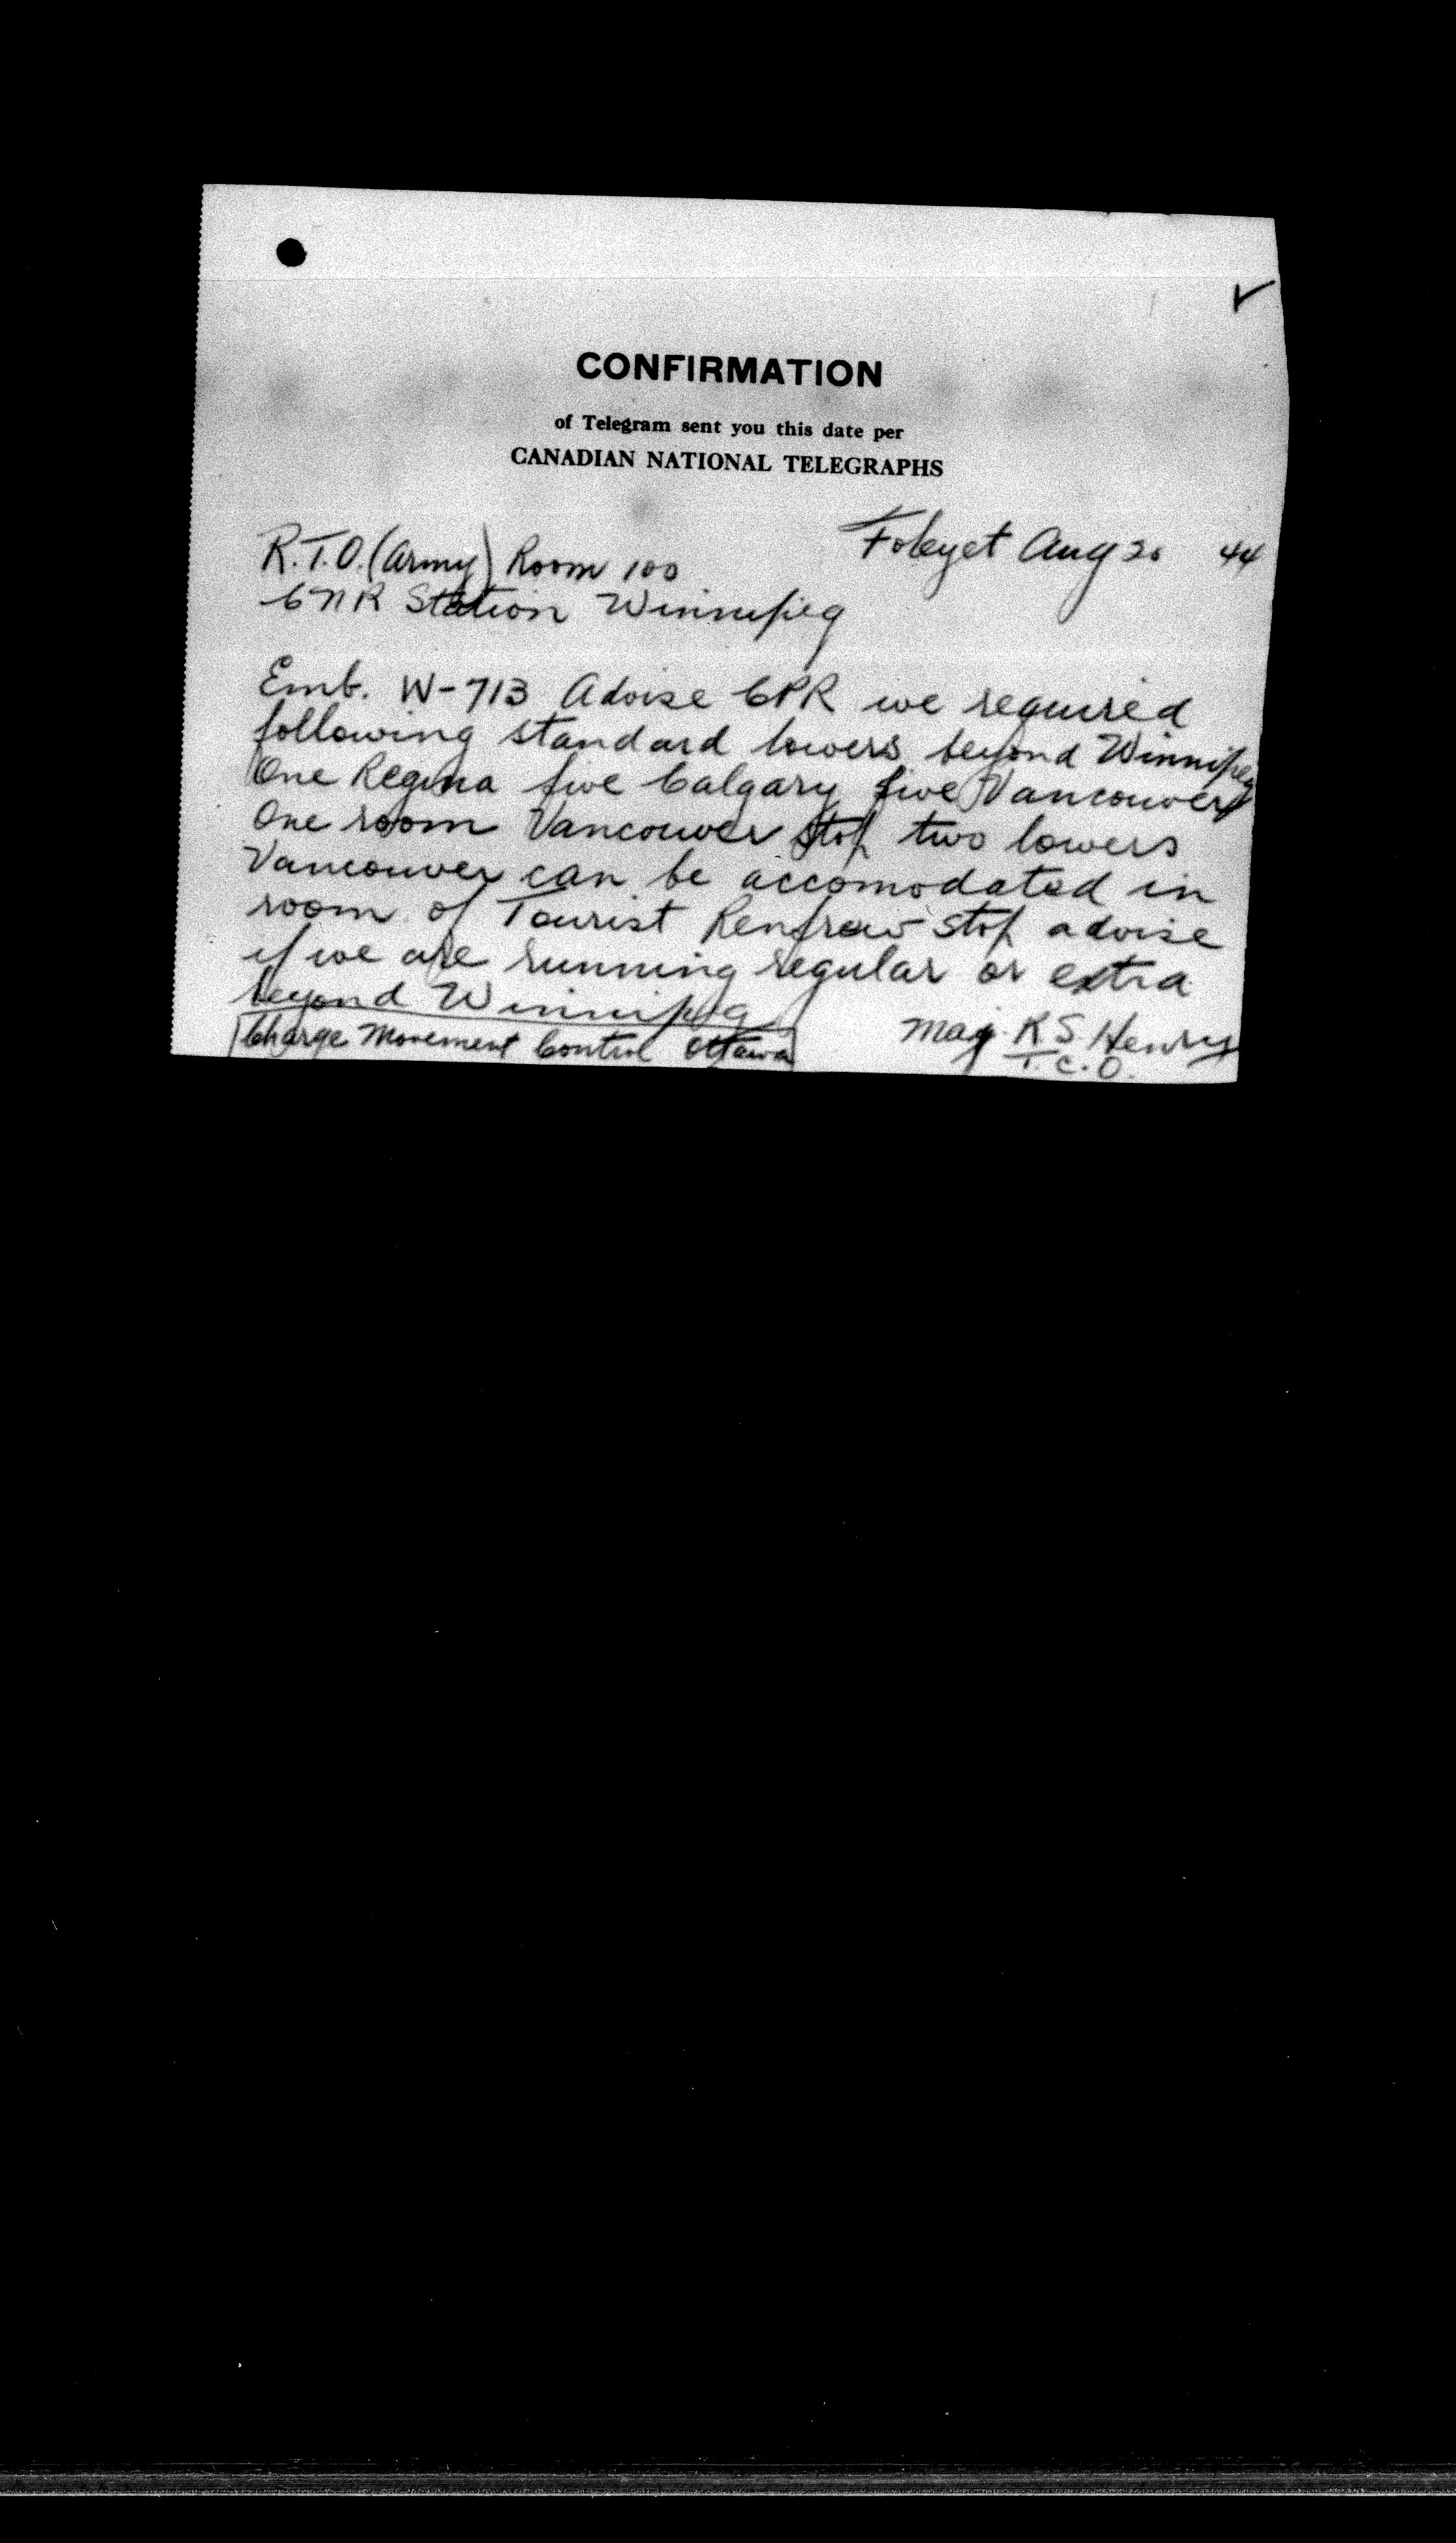 CONFIRMATION
of Telegram sent you this date per
CANADIAN NATIONAL TELEGRAPHS
Foleyet Aug 20 44
R.T.O. (Army) Room 100
CNR Station Winnipeg
Emb. W-713 Advise CPR we required
following standard lowers beyond Winnipeg
One Regina five Calgary five Vancouver
One room Vancouver stop two lowers
Vancouver can be accomodated in
room of Tourist Renfrew stop advise
if we are running regular or extra
beyond Winnipeg
Charge Movement Control Ottawa
Maj. R S. Henry
T.C.O.